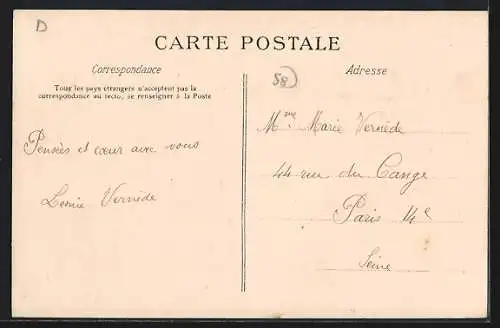 D
CARTE POSTALE
Correspondance
Tous les pays étrangers n'acceptent pas la
correspondance au recto, se renseigner à la Poste
58
Adresse
Pensées et cœur avec vous
Vernède
Mme Marie Vernède
44 rue du Cange
Paris 14e
Seine